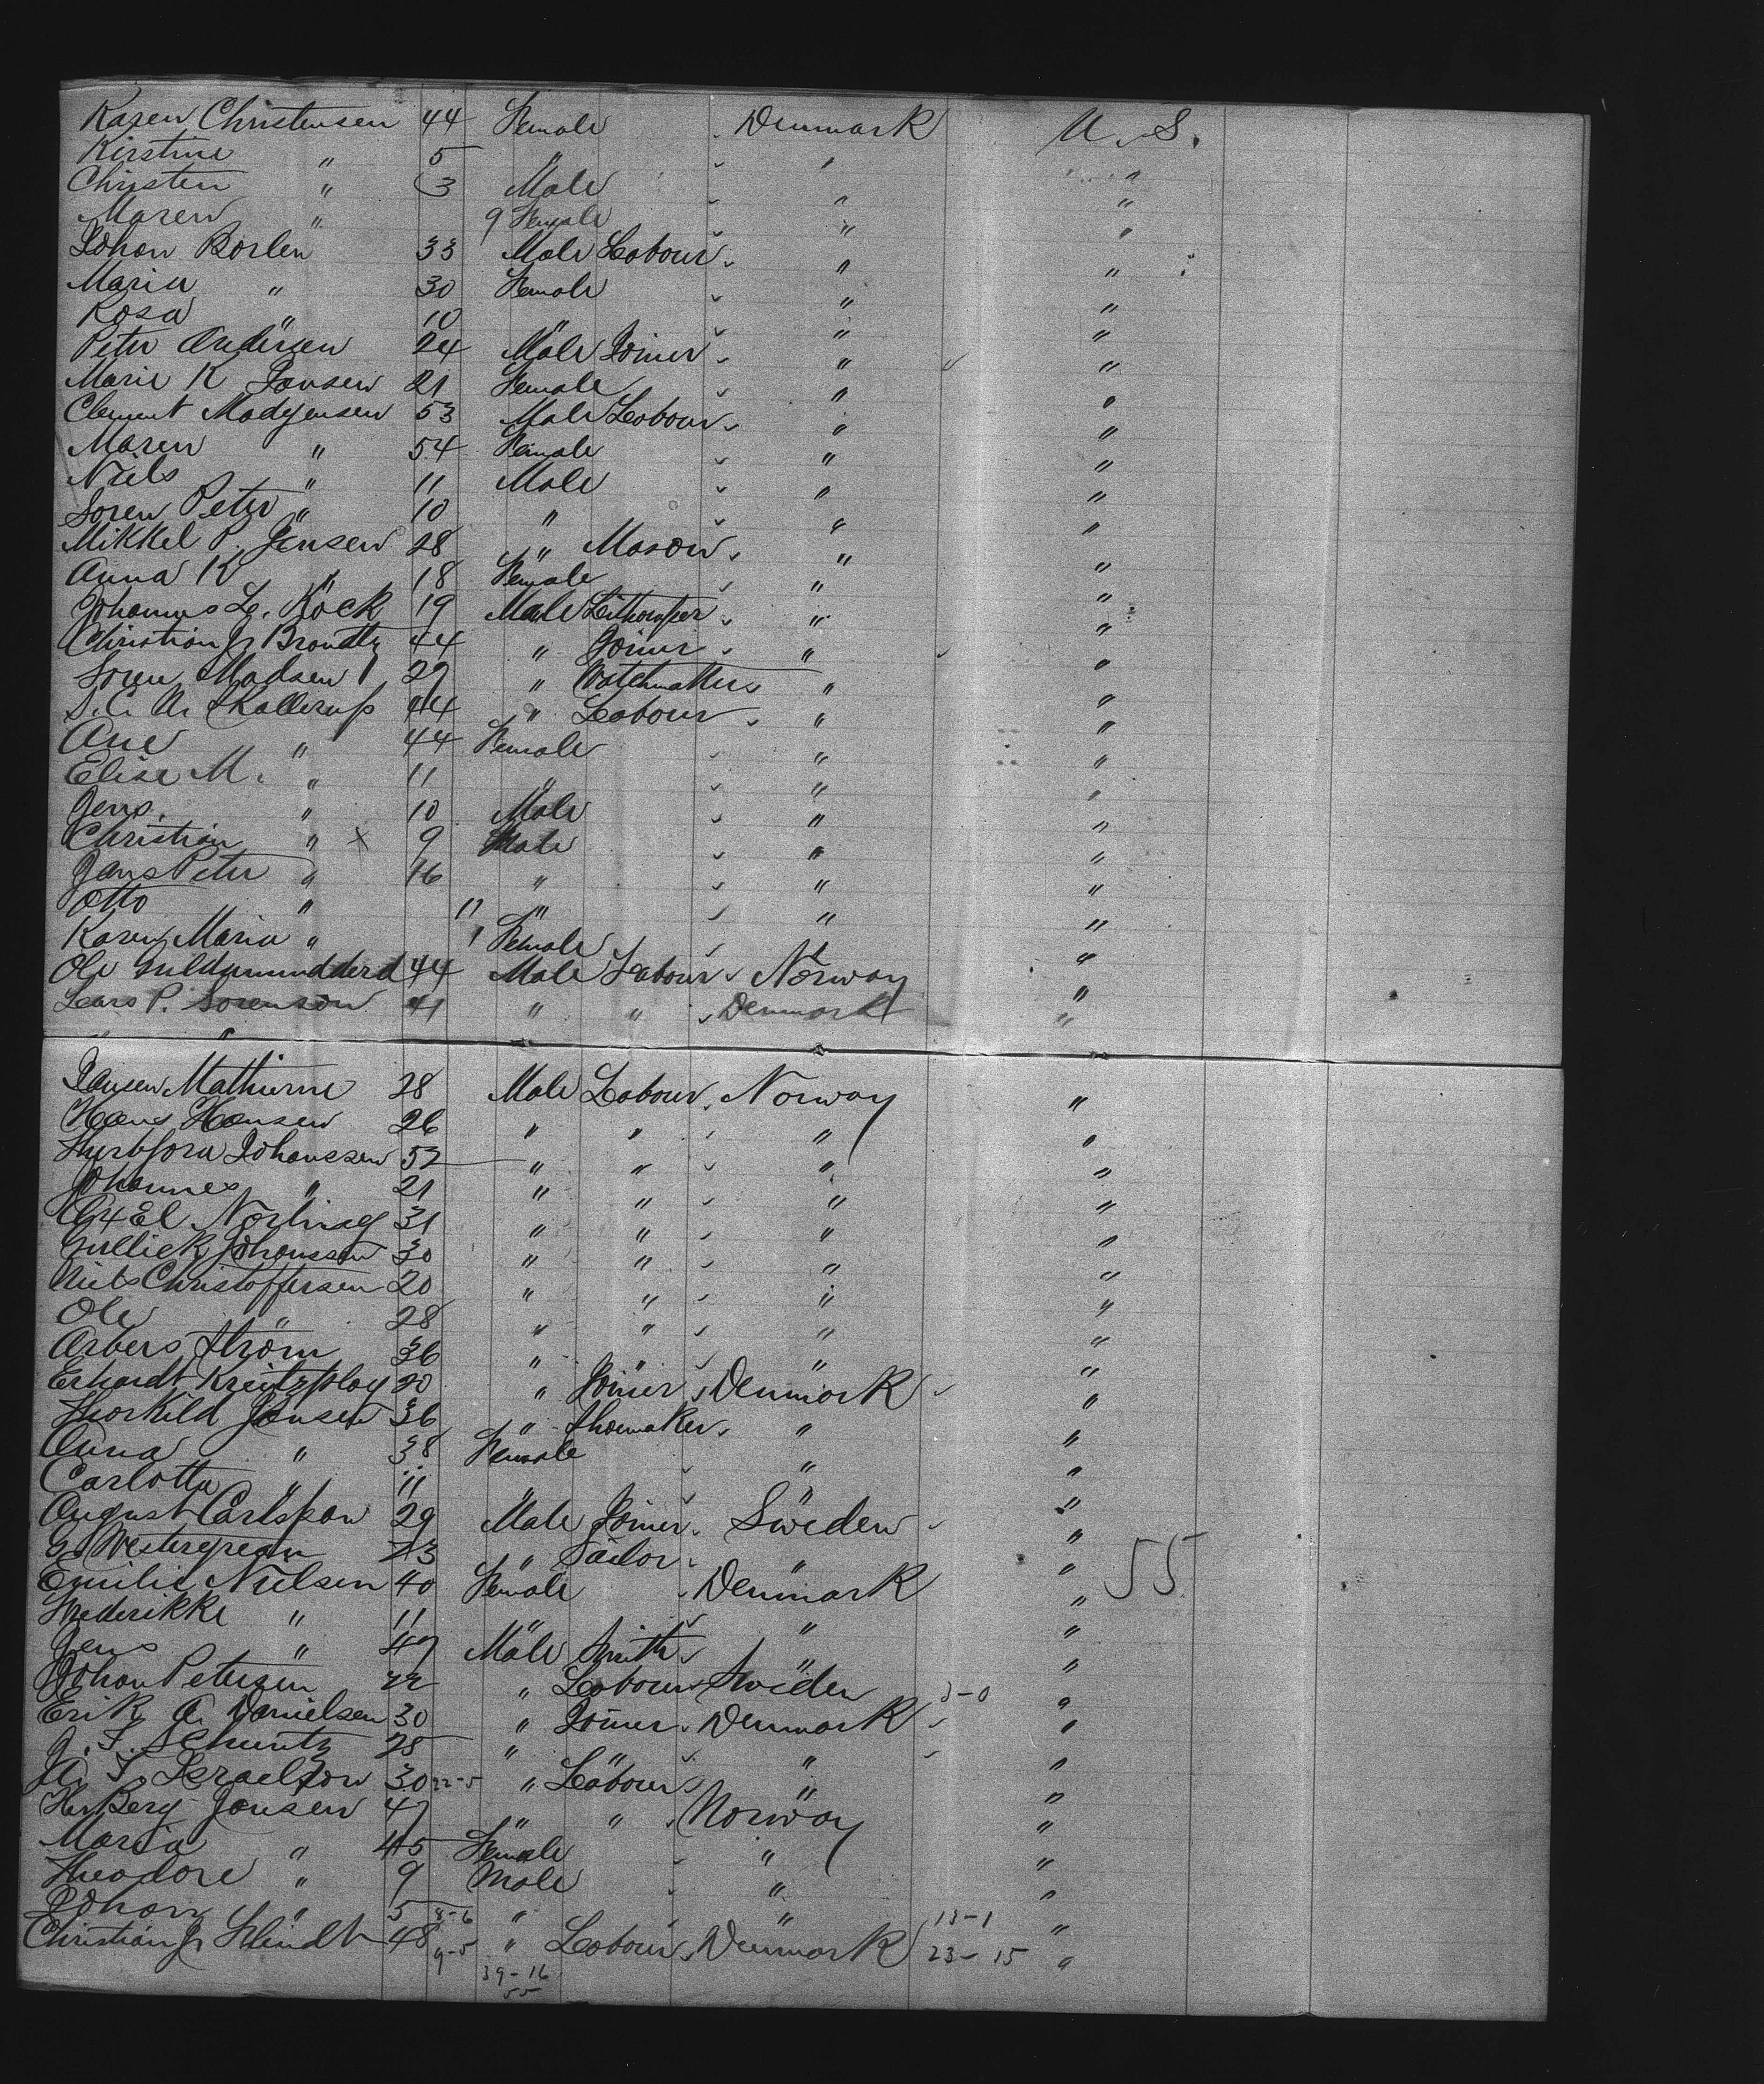 Karen Christensen 44 Female Denmark U. S.
Kirstine " 5 " " "
Christen " 3 Male " "
Maren " 9 Female " "
Johan Borlen 33 Male Labour " "
Maria " 30 Female " "
Rosa " 10 " " "
Peter Andersen 24 Male Joiner " "
Marie K Jansen 21 Female " "
Clement Madgensen 53 Male Labour " "
Maren " 54 Female " "
Niels " 11 Male " "
Soren Peter " 10 " " "
Mikkel P. Jensen 28 " Mason " "
Anna K " 18 Female " "
Johannes L. Köck 19 Male " "
Christian Jr 44 " Joiner " "
Soren Madsen 29 " Watchmaker " "
S. C. A. Skallerup 44 " Labour " "
Ane " 44 Female " "
Elise M. " 11 " " "
Jens " 10 Male " "
Christian " x 9 Male " "
Jens Peter " 16 " " "
Otto " 11 " " "
Karen Maria " 1 Female " "
Ole 44 Male Labour Norway "
Lars P. Sorenson 41 " " Denmark "
Jansen 28 Male Labour Norway "
Hans Hansen 26 " " " "
Johanssen 52 " " " "
Johannes " 21 " " " "
Axel 31 " " " "
Gullick Johanssen 30 " " " "
Niels Christoffersen 20 " " " "
Ole " 28 " " " "
Strom 36 " " " "
Erhardt 20 " Joiner Denmark "
Thorkild Jensen 36 " Shoemaker " "
Anna " 38 Female " "
Carlotta " 11 " " "
August Carlson 29 Male Joiner Sweden "
G. Westergrean 23 " Sailor " "
Emilie Nielsen 40 Female Denmark " 55
Frederikke " 11 " " "
Jens " 47 Male Smith " "
Johan Petersen 22 " Labour Sweden "
Erik A. Danielsen 30 " Joiner Denmark "
J. F. Schuntz 25 " " "
A. F. Israelson 30 22-5 " Labour " "
Berg Jansen 47 " " Norway "
Maria " 45 Female " "
Theodore " 9 Male " "
Johan " 5 8-6 " " 13-1 "
Christian Jr 48 9-5 " Labour Denmark 23-15 "
39-16
55